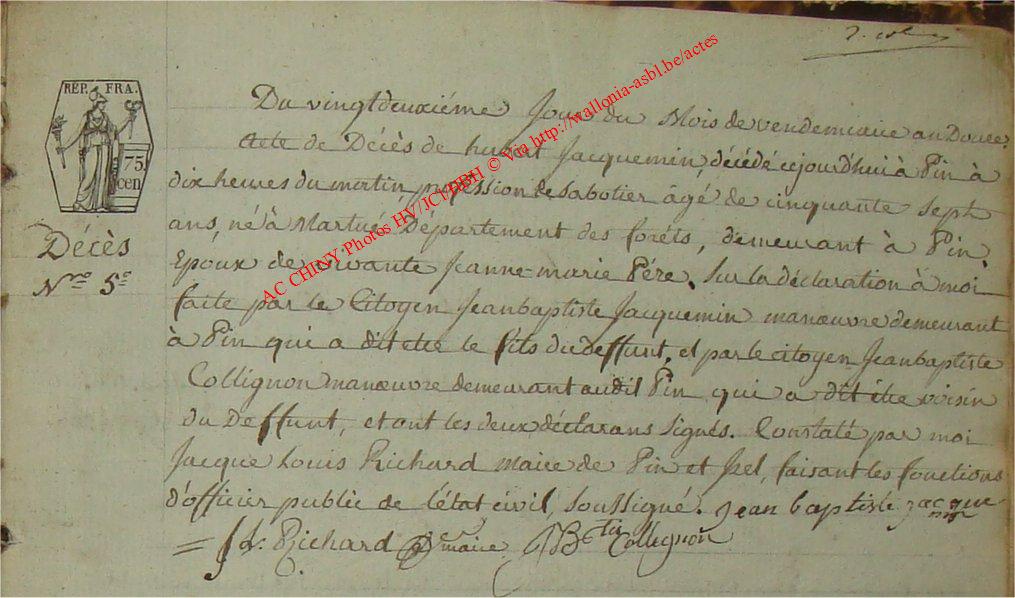 REP. FRA.
75.
cen
Décès
Nro 5e
Du vingtdeuxiéme Jour du Mois de vendemiaire an Douze
Acte de Décès de hubert Jacquemin, décédé cejourd'hui à Pin à
dix heures du martin, profession de sabotier âgé de cinquante sept
ans, né à Martué Département des foréts, demeurant à Pin.
Epoux de vivante Jeanne-marie Pére. Sur la déclaration à moi
faite par le Citoyen Jeanbaptiste Jacquemin manœuvre demeurant
à Pin qui a dit etre le fils du deffunt, et par le citoyen Jeanbaptiste
Collignon manœuvre demeurant audit Pin qui a dit être voisin
du Deffunt, et ont les deux déclarans signés. Constaté par moi
Jacque Louis Richard maire de Pin et Izel, faisant les fonctions
d'officier public de l'état civil, soussigné. Jean baptiste jacque-
min
Richard maire JBtis Collignon
AC CHINY Photos HV/JCI/BBH © Via http://wallonia-asbl.be/actes